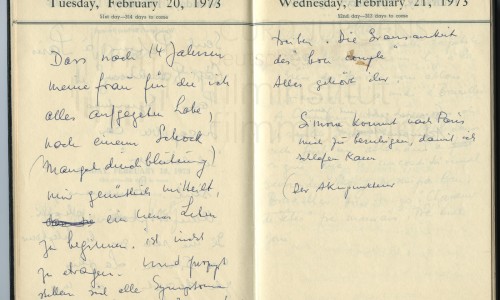 Tuesday, February 20, 1973
51st day—314 days to come
Dass nach 14 Jahren
meine Frau für die ich
alles aufgegeben habe,
nach einem Schock
(Mangel durchblutung)
mir gemütlich mitteilt,
ein neues Leben
zu beginnen. ist nicht
zu ertragen. Und prompt
stellen sich alle Symptome
Wednesday, February 21, 1973
52nd day—313 days to come
trüber. Die Grausamkeit
des "bon couple"
Alles gehört der...
Simone kommt nach Paris
mich zu beruhigen, damit ich
schlafen kann
(Der Akupunkteur